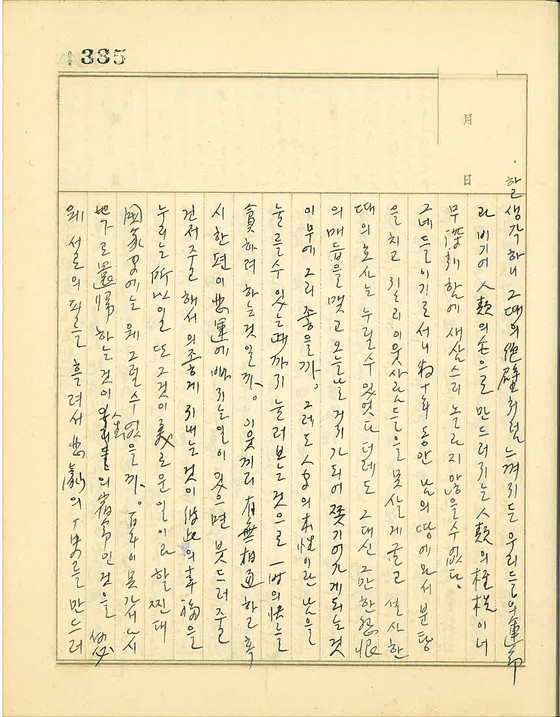 생각하니 그때의 絶壁처럼 느껴지든 우리들의 運命
과 비기어 人類의 손으로 만드러지는 人類의 桎梏이 너
무 深刻함에 새삼스리 놀라지 않을 수 없다.
그네들이기로서니 數十年 동안 남의 땅에 와서 분탕
을 치고 이웃사람들을 못살게 굴고 설사 한
때의 호사는 누릴 수 있었다 더레도 그대신 그만한 怨恨
의 매듭을 맺고 오늘날 거지가 되어 쫓기어나게 되는 것
이 무에 그리 좋을까. 그래도 人間의 本性이란 남을
눌를 수 있는 때까지 눌러보는 것으로 一時의 快를
貪하려 하는 것일까. 이웃끼리 有無相通하고 혹
시 한편이 悲運에 빠지는 일이 있으면 붓드러주고
건저주군 해서 의좋게 지내는 것이 彼此의 幸福을
누리는 所以일 또 그것이 美로운 일이라 할진대
國家間에는 왜 그럴 수 없을까. 百年이 못가서 다시
地下로 還歸하는 것이 宿命인 것을
왜 서로의 피를 흘려서 悲劇의 歷史를 만드러
月
日
335